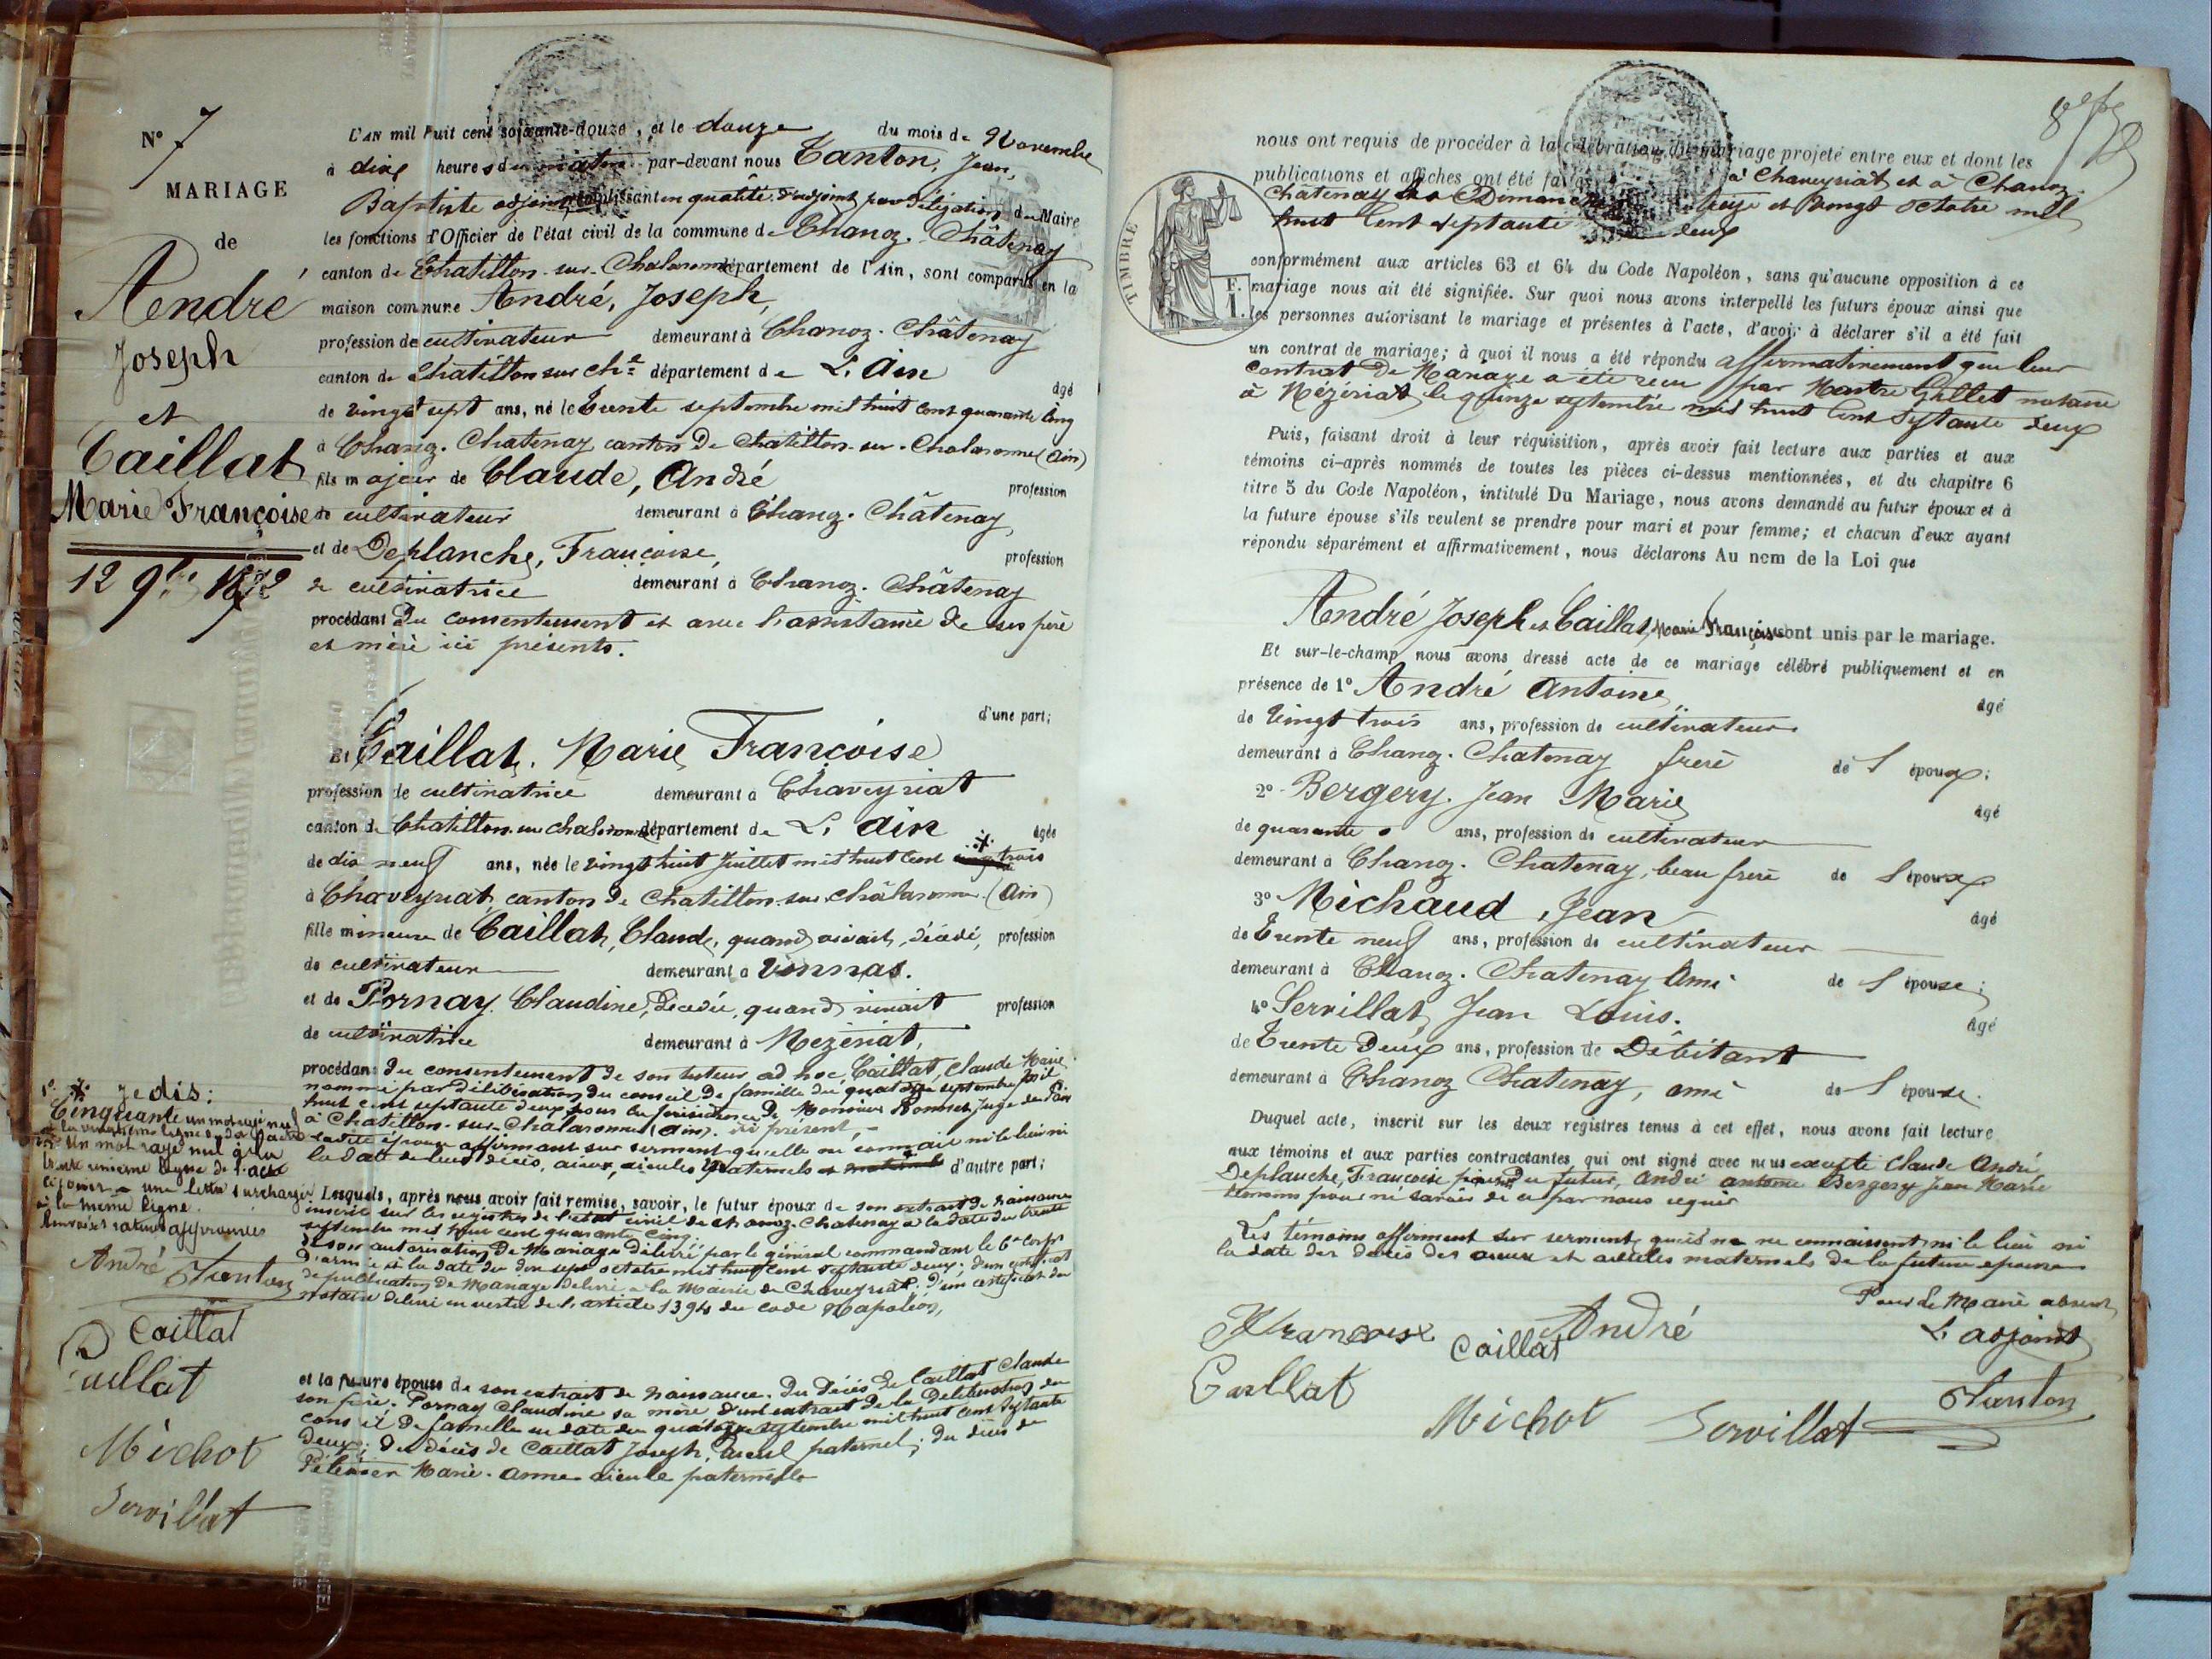 N° 7
MARIAGE
de
André
Joseph
et
Caillat
Marie Françoise
12 9bre 1872
L'AN mil huit cent soixante-douze, et le douze du mois de Novembre
à dix heures du matin par-devant nous Tanton, Jean,
Baptiste adjoint remplissant en qualité d'adjoint par délégation du Maire
les fonctions d'Officier de l'état civil de la commune de Chanoz-Châtenay
canton de Chatillon-sur-Chalaronne département de l'Ain, sont comparus en la
maison commune André, Joseph,
profession de cultivateur demeurant à Chanoz-Châtenay
canton de Chatillon sur Chne département de L'Ain âgé
de vingt sept ans, né le Trente septembre mil huit cent quarante cinq
à Chanoz-Chatenay canton de Chatillon-sur-Chalaronne (Ain)
fils majeur de Claude, André profession
de cultivateur demeurant à Chanoz-Châtenay
et de Deplanche, Françoise, profession
de cultivatrice demeurant à Chanoz-Châtenay
procédant du consentement et avec l'assistance de ses père
et mère ici présents.
d'une part;
Et Caillat, Marie Françoise
profession de cultivatrice demeurant à Chaveyriat
canton de Chatillon-sur-Chalaronne département de L'Ain âgée
de dix neuf ans, née le vingt huit Juillet mil huit cent trois
à Chaveyriat, canton de Chatillon-sur-Châlaronne (Ain)
fille mineure de Caillat, Claude, quand vivait, décédé, profession
de cultivateur demeurant à Vonnas.
et de Pornay Claudine, Décédée, quand vivait profession
de cultivatrice demeurant à Mézériat,
procédant du consentement de son tuteur ad hoc Caillat, Claude Marie
nommé par délibération du conseil de famille du quatorze septembre mil
huit cent septante deux sous la présidence de Monsieur Bonnet Juge de Paix
à Chatillon-sur-Chalaronne (Ain). ici présent,
ladite épouse affirmant sur serment qu'elle ne connait ni le lieu ni
la date de leurs décès, aieux, aieules paternels et maternels d'autre part;
1° Je dis:
Cinquante un mot rayé nul
à la vingtième ligne de l'acte
Un mot rayé nul à la
trente unième ligne de l'acte
une lettre surchargée
à la même ligne.
Renvois et ratures approuvés
André Tanton
Caillat
Caillat
Michot
Servillat
Lesquels, après nous avoir fait remise, savoir, le futur époux de son extrait de naissance
inscrit sur les registres de l'état civil de Chanoz-Chatenay à la date du trente
septembre mil huit cent quarante cinq;
de son autorisation de Mariage délivré par le général commandant le 6e Corps
d'armée à la date du dix sept octobre mil huit cent septante deux; d'un certificat
de publication de Mariage délivré à la Mairie de Chaveyriat; d'un certificat du
notaire délivré en vertu de l'article 1394 du code Napoléon,
et la future épouse de son extrait de naissance. du Décès de Caillat Claude
son père; Pornay Claudine sa mère d'un extrait de la Délibération du
conseil de famille en date du quatorze septembre mil huit cent septante
deux; du décès de Caillat Joseph, aieul paternel; du décès de
Marie-Anne aieule paternelle
nous ont requis de procéder à la célébration du mariage projeté entre eux et dont les
publications et affiches ont été faites à Chaveyriat et à Chanoz-
Châtenay les Dimanches treize et vingt octobre mil
huit cent septante deux
conformément aux articles 63 et 64 du Code Napoléon, sans qu'aucune opposition à ce
mariage nous ait été signifiée. Sur quoi nous avons interpellé les futurs époux ainsi que
les personnes autorisant le mariage et présentes à l'acte, d'avoir à déclarer s'il a été fait
un contrat de mariage; à quoi il nous a été répondu affirmativement que leur
contrat de Mariage a été reçu par Maître Gillet notaire
à Mézériat, le quinze septembre mil huit cent septante deux
TIMBRE
F.
1.
Puis, faisant droit à leur réquisition, après avoir fait lecture aux parties et aux
témoins ci-après nommés de toutes les pièces ci-dessus mentionnées, et du chapitre 6
titre 5 du Code Napoléon, intitulé Du Mariage, nous avons demandé au futur époux et à
la future épouse s'ils veulent se prendre pour mari et pour femme; et chacun d'eux ayant
répondu séparément et affirmativement, nous déclarons Au nom de la Loi que
André Joseph et Caillat, Marie Françoise sont unis par le mariage.
Et sur-le-champ nous avons dressé acte de ce mariage célébré publiquement et en
présence de 1° André Antoine, âgé
de Vingt trois ans, profession de cultivateur
demeurant à Chanoz-Chatenay frère de l'époux;
2° Bergery Jean Marie âgé
de quarante ans, profession de cultivateur
demeurant à Chanoz-Chatenay, beau frère de l'époux
3° Michaud, Jean âgé
de Trente neuf ans, profession de cultivateur
demeurant à Chanoz-Chatenay Ami de l'épouse;
4° Servillat, Jean Louis. âgé
de Trente Deux ans, profession de Débitant
demeurant à Chanoz Chatenay, ami de l'épouse.
Duquel acte, inscrit sur les deux registres tenus à cet effet, nous avons fait lecture
aux témoins et aux parties contractantes qui ont signé avec nous excepté Claude André
Deplanche, Françoise du futur, André antoine Bergery Jean Marie
témoins pour ne savoir de ce par nous requis
Les témoins affirment sur serment qu'ils ne connaissent ni le lieu ni
la date des décès des aieux et aieules maternels de la future épouse
Pour le Maire absent
L'adjoint
Tanton
Françoise Caillat André
Caillat
Michot Servillat